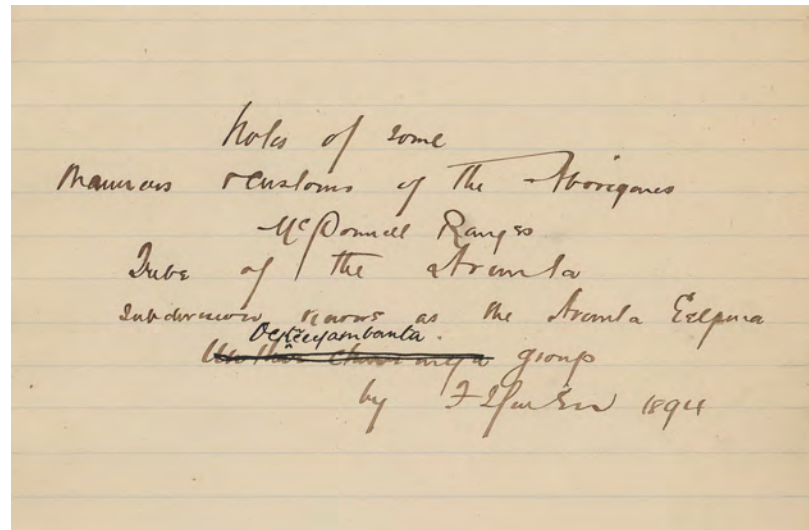 Notes of some
Manners & Customs of the Aborigones
McDonnell Ranges
Tribe of the Arunta
Subdivision known as the Arunta Eelpma
group
by F J Gillen 1894